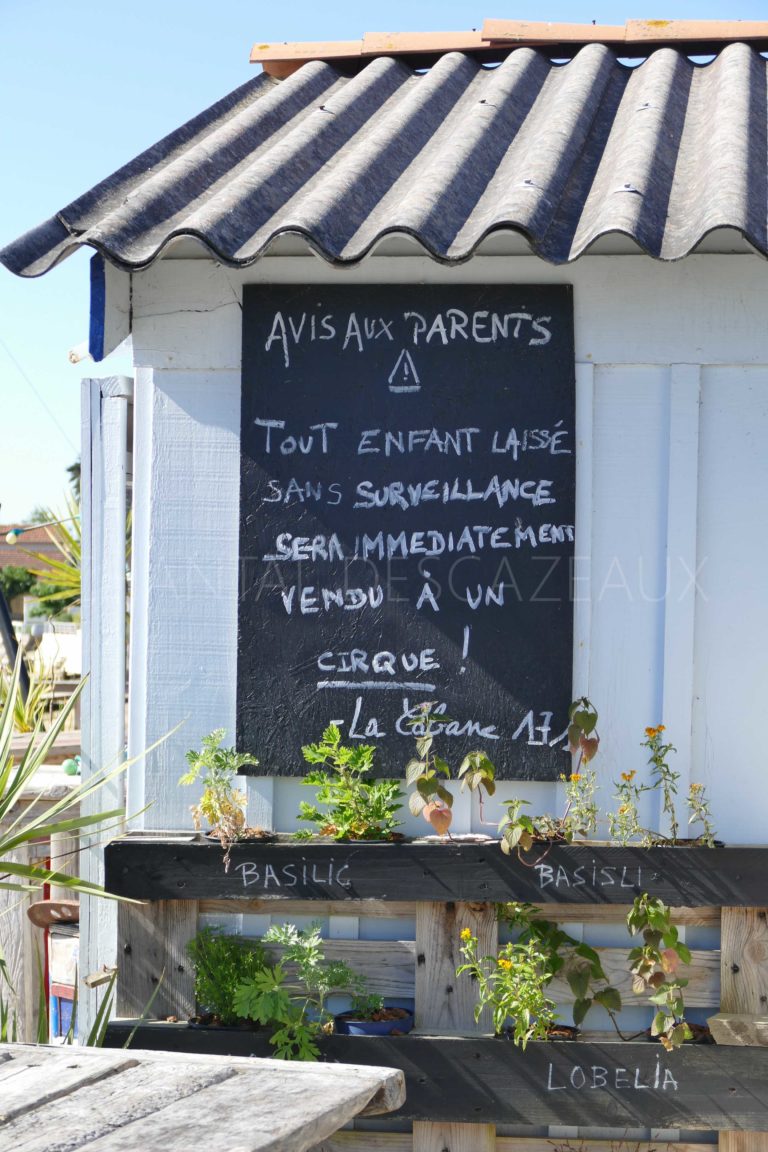 AVIS AUX PARENTS
TOUT ENFANT LAISSÉ
SANS SURVEILLANCE
SERA IMMEDIATEMENT
VENDU À UN
CIRQUE !
- La Cabane 17
BASILIC
BASISLI
LOBELIA